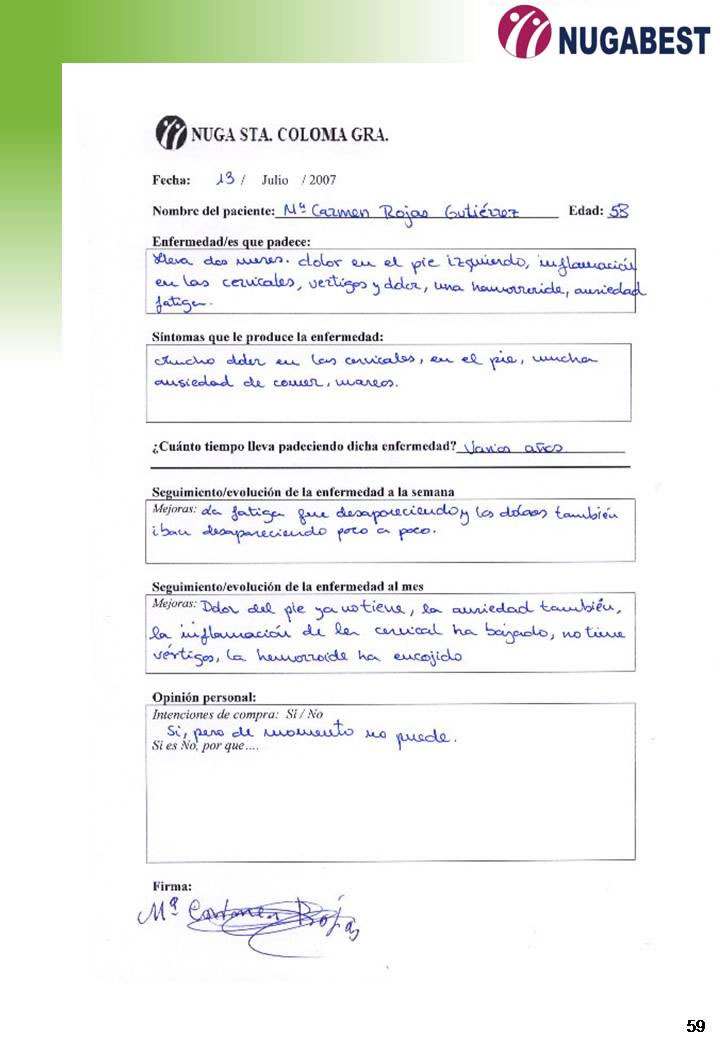 NUGABEST
NUGA STA. COLOMA GRA.
Fecha: 13 / Julio / 2007
Nombre del paciente: Mª Carmen Rojas Gutiérrez Edad: 58
Enfermedad/es que padece:
lleva dos meses. dolor en el pie izquierdo, inflamación
en las cervicales, vertigos y dolor, una hemorroide, ansiedad
fatiga.
Síntomas que le produce la enfermedad:
Mucho dolor en las cervicales, en el pie, mucha
ansiedad de comer, mareos.
¿Cuánto tiempo lleva padeciendo dicha enfermedad? Varios años.
Seguimiento/evolución de la enfermedad a la semana
Mejoras: La fatiga fue desapareciendo y los dolores también
iban desapareciendo poco a poco.
Seguimiento/evolución de la enfermedad al mes
Mejoras: Dolor del pie ya no tiene, la ansiedad también,
la inflamación de la cervical ha bajado, no tiene
vértigos, la hemorroide ha encojido
Opinión personal:
Intenciones de compra: Si / No
Si, pero de momento no puede.
Si es No, por que....
Firma:
Mª Carmen Rojas
59